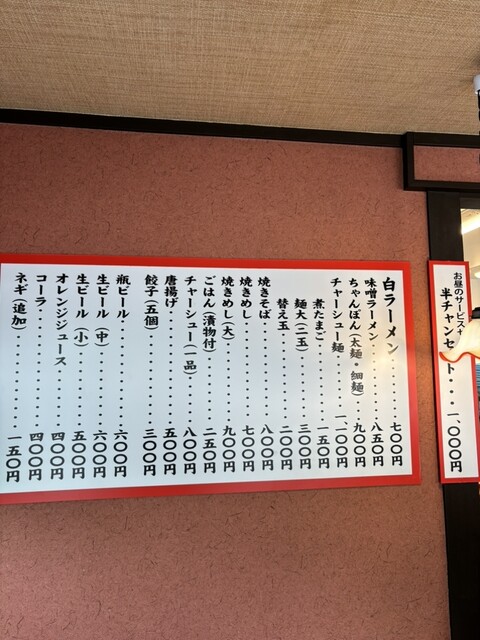 白ラーメン・・・・・・・・・・七〇〇円
味噌ラーメン・・・・・・・・・八五〇円
ちゃんぽん(太麺・細麺)・・・九〇〇円
チャーシュー麺・・・・・・一、一〇〇円
煮たまご・・・・・・・・・一五〇円
麺大(二玉)・・・・・・・・三〇〇円
替え玉・・・・・・・・・・二〇〇円
焼きそば・・・・・・・・・・八〇〇円
焼きめし・・・・・・・・・・七〇〇円
焼きめし(大)・・・・・・・・九〇〇円
ごはん(漬物付)・・・・・・・二五〇円
チャーシュー(一品)・・・・・八〇〇円
唐揚げ・・・・・・・・・・・五〇〇円
餃子(五個)・・・・・・・・・三〇〇円
瓶ビール・・・・・・・・・・六〇〇円
生ビール(中)・・・・・・・・六〇〇円
生ビール(小)・・・・・・・・五〇〇円
オレンジジュース・・・・・・四〇〇円
コーラ・・・・・・・・・・・四〇〇円
ネギ(追加)・・・・・・・・・一五〇円
お昼のサービス
半チャンセット・・・一、〇〇〇円